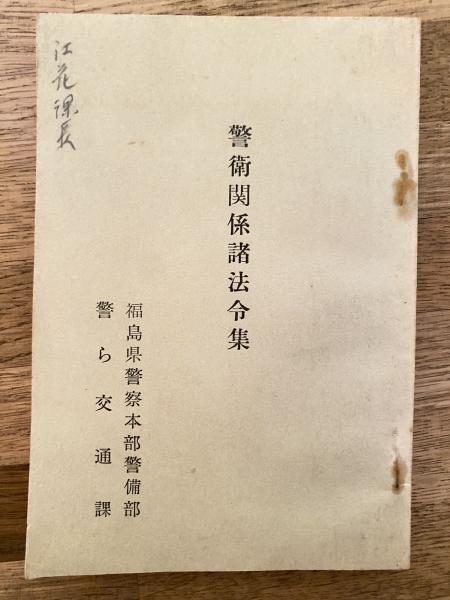 警衛関係諸法令集
福島県警察本部警備部
警ら交通課
江花課長